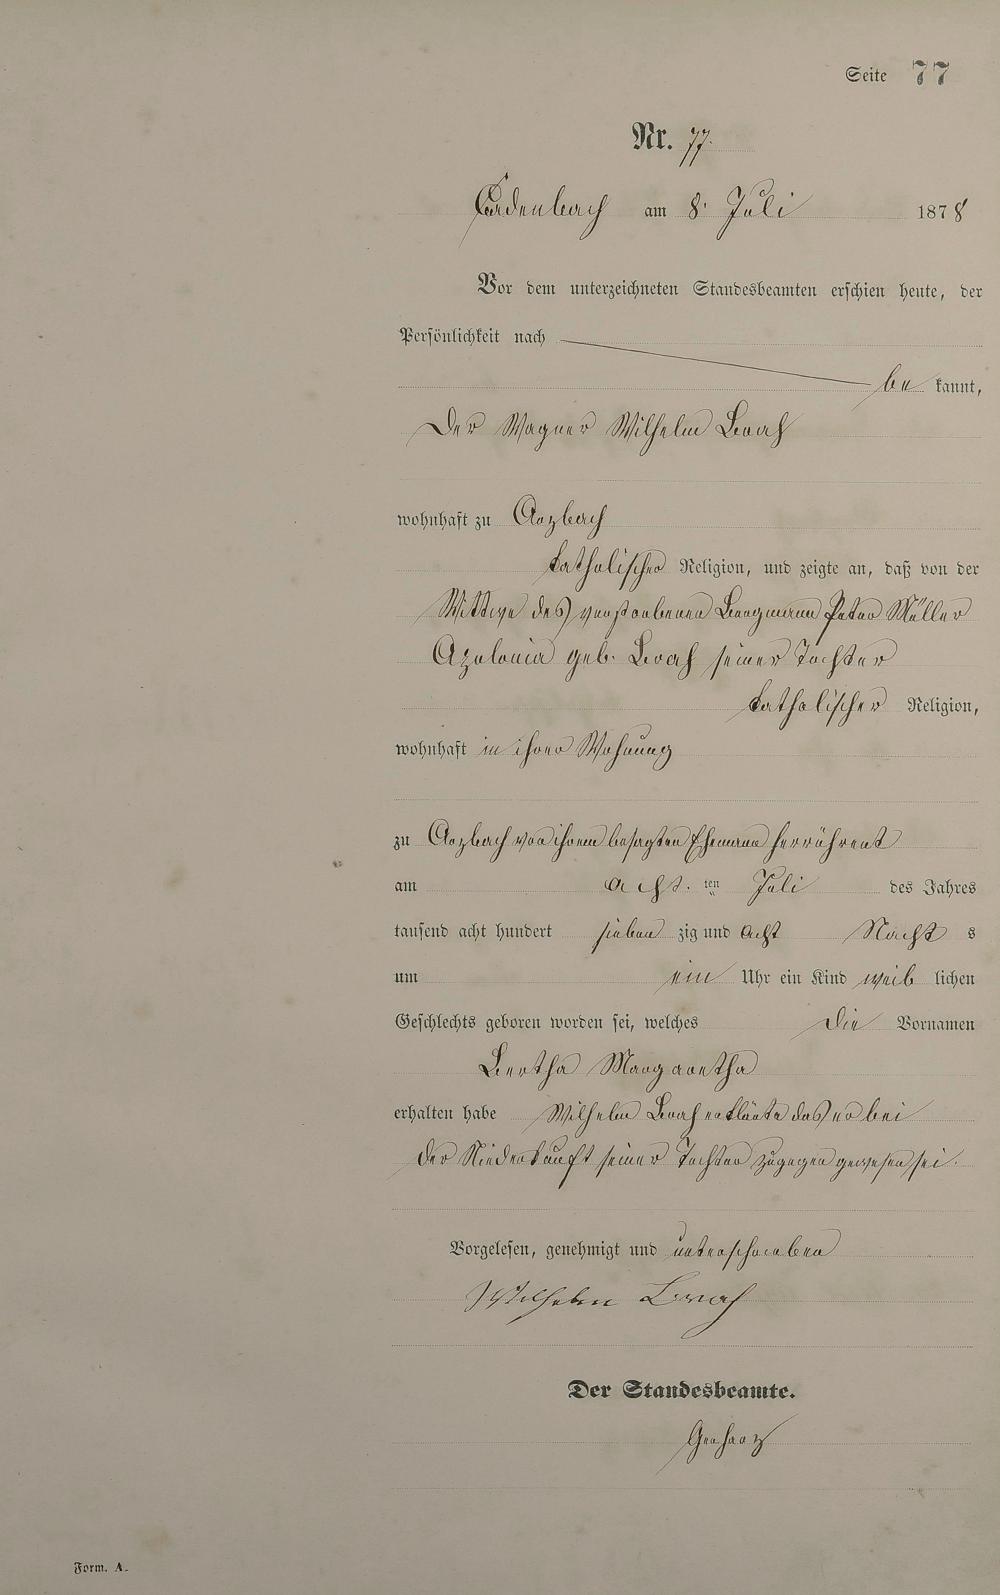 Seite 77
Nr. 77.
Cadenbach am 8. Juli 1878
Vor dem unterzeichneten Standesbeamten erschien heute, der
Persönlichkeit nach
be kannt,
Der Wagner Wilhelm Brah
wohnhaft zu Arzbach
katholischer Religion, und zeigte an, daß von der
Wittwe des verstorbenen Bergmann Peter Müller
Apolonia geb. Brah seiner Tochter
katholischer Religion,
wohnhaft in ihrer Wohnung
zu Arzbach von ihrem besagten Ehemann herrührent
am acht. ten Juli des Jahres
tausend acht hundert sieben zig und acht Nacht s
um ein Uhr ein Kind weib lichen
Geschlechts geboren worden sei, welches die Vornamen
Bertha Margaretha
erhalten habe Wilhelm Brah erklärte das er bei
der Niederkunft seiner Tochter zugegen gewesen sei.
Vorgelesen, genehmigt und unterschrieben
Wilhelm Brah
Der Standesbeamte.
Gerharz
Form. A.